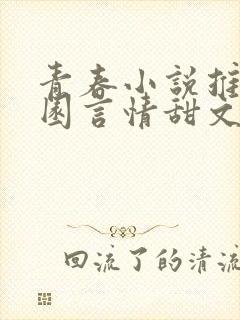 青春小説推
園言情甜文
回流了的清流